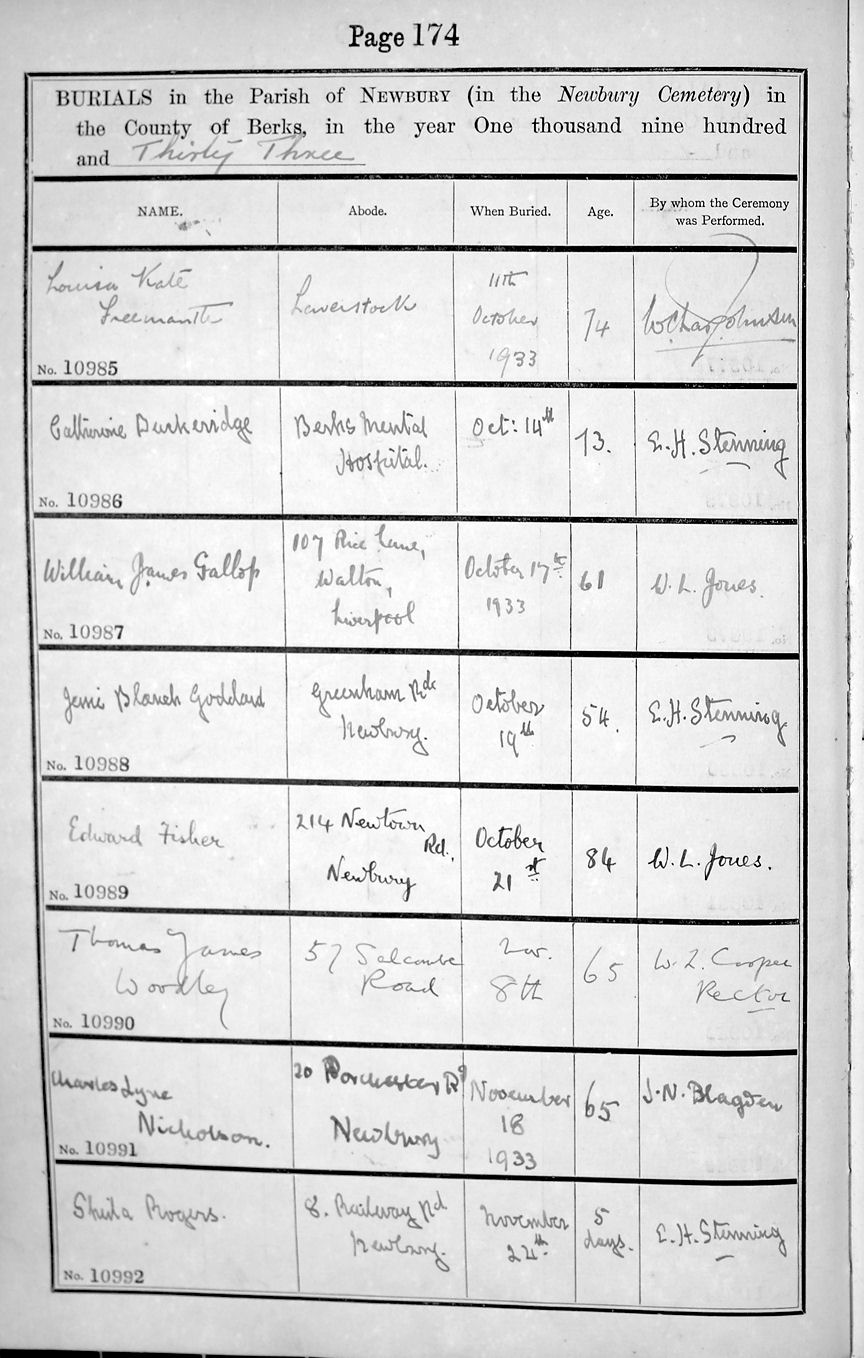 Page 174
BURIALS in the Parish of NEWBURY (in the Newbury Cemetery) in
the County of Berks, in the year One thousand nine hundred
and Thirty Three
NAME.
Abode.
When Buried.
Age.
By whom the Ceremony
was Performed.
Louisa Kate
Freemantle
No. 10985
Laverstock
11th
October
1933
74
W. Chas. Johnson
Catherine Buckeridge
No. 10986
Berks Mental
Hospital.
Oct: 14th
73.
E. H. Stenning
William James Gallop
No. 10987
107 Rice Lane,
Walton,
Liverpool
October 17th
1933
61
W. L. Jones.
Blanch Goddard
No. 10988
Greenham Rd
Newbury.
October
19th
54.
E. H. Stenning
Edward Fisher
No. 10989
214 Newtown
Rd.,
Newbury
October
21st
84
W. L. Jones.
Thomas James
Woodley
No. 10990
57 Salcombe
Road
Nov.
8th
65
W. L. Cooper
Rector
Charles Lyne
Nicholson.
No. 10991
20 Porchester Rd
Newbury
November
18
1933
65
J. N. Blagden
Sheila Rogers.
No. 10992
8. Railway Rd
Newbury.
November
24th
5
days.
E. H. Stenning